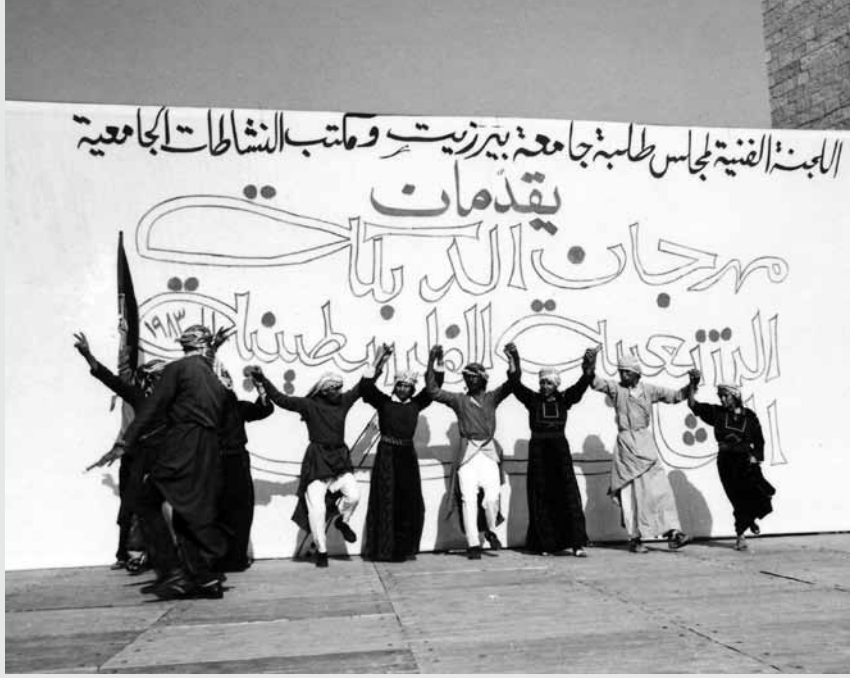 اللجنة الفنية لمجلس طلبة جامعة بيرزيت ومكتب النشاطات الجامعية
يقدمان
مهرجان الدبكات
الشعبية الفلسطينية
١٩٨٣